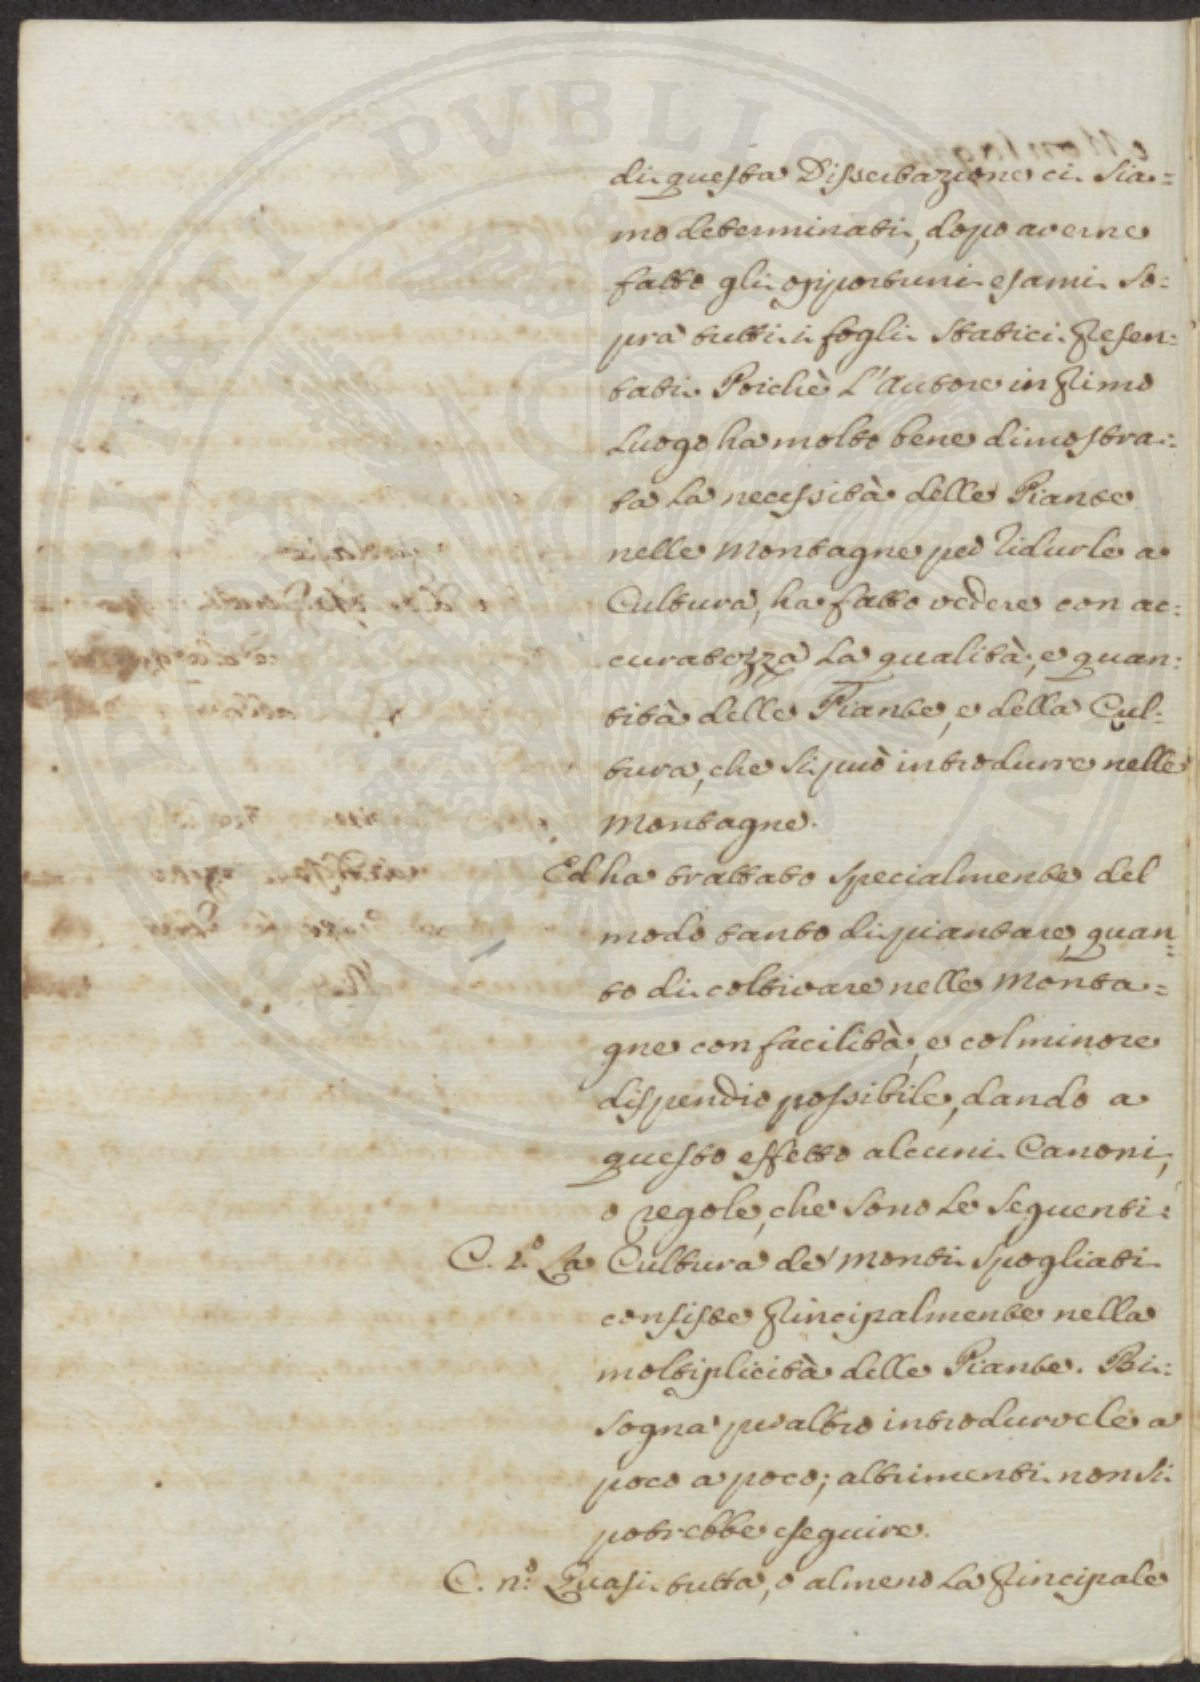 di questa Dissertazione ci sia=
mo determinati, dopo averne
fatto gli opportuni esami so=
pra tutti i fogli statici presen=
tati. Poichè l'Autore in primo
luogo ha molto bene dimostra=
ta la necessità delle Piante
nelle montagne per ridurle a
Cultura, ha fatto vedere con ac=
curatezza la qualità, e quan=
tità delle Piante, e della Cul=
tura, che si può introdurre nelle
montagne.
Ed ha trattato specialmente del
modo tanto di piantare, quan=
to di coltivare nelle monta=
gne con facilità, e col minore
dispendio possibile, dando a
questo effetto alcuni Canoni,
o regole, che sono le seguenti:
C. 1.º La Cultura de' monti spogliati
consiste principalmente nella
moltiplicità delle Piante. Bi=
sogna per altro introdurvele a
poco a poco; altrimenti non si
potrebbe eseguire.
C. n.º Quasi tutta, o almeno la principale
PROSPERITATI PVBLICAE